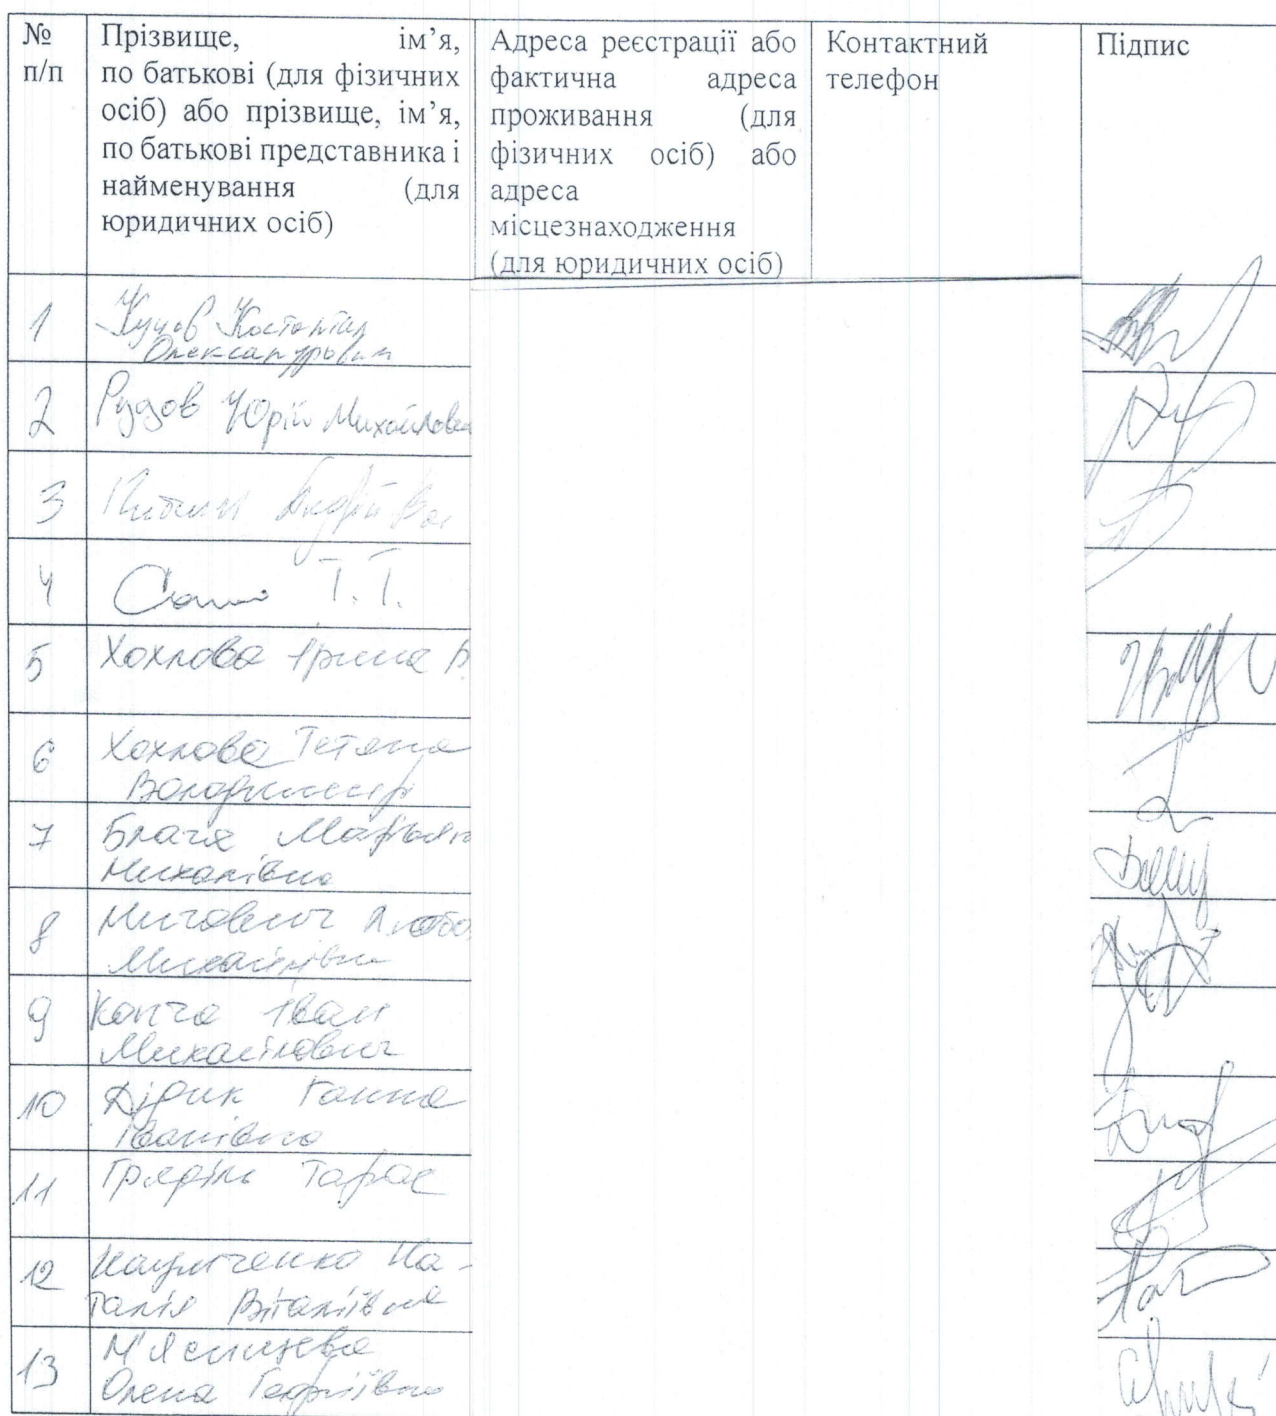 № п/п
Прізвище, ім’я,
по батькові (для фізичних
осіб) або прізвище, ім’я,
по батькові представника і
найменування (для
юридичних осіб)
Адреса реєстрації або
фактична адреса
проживання (для
фізичних осіб) або
адреса
місцезнаходження
(для юридичних осіб)
Контактний
телефон
Підпис
1
Олександрович
2 Рудов Юрій Михайлови
3 Андрій
4 Т.Т.
5 Хохлова Ірина В.
6 Хохлова Тетяна
Володимирі
7 Блага Мар'яна
Михайлівна
8 Мигович Любо
Михайлівна
9 Копча Іван
Михайлович
10 Дідик Ганна
Іванівна
11 Гряділь Тарас
12 На-
талія Віталіївна
13 М'ясищева
Олена Георгіївна